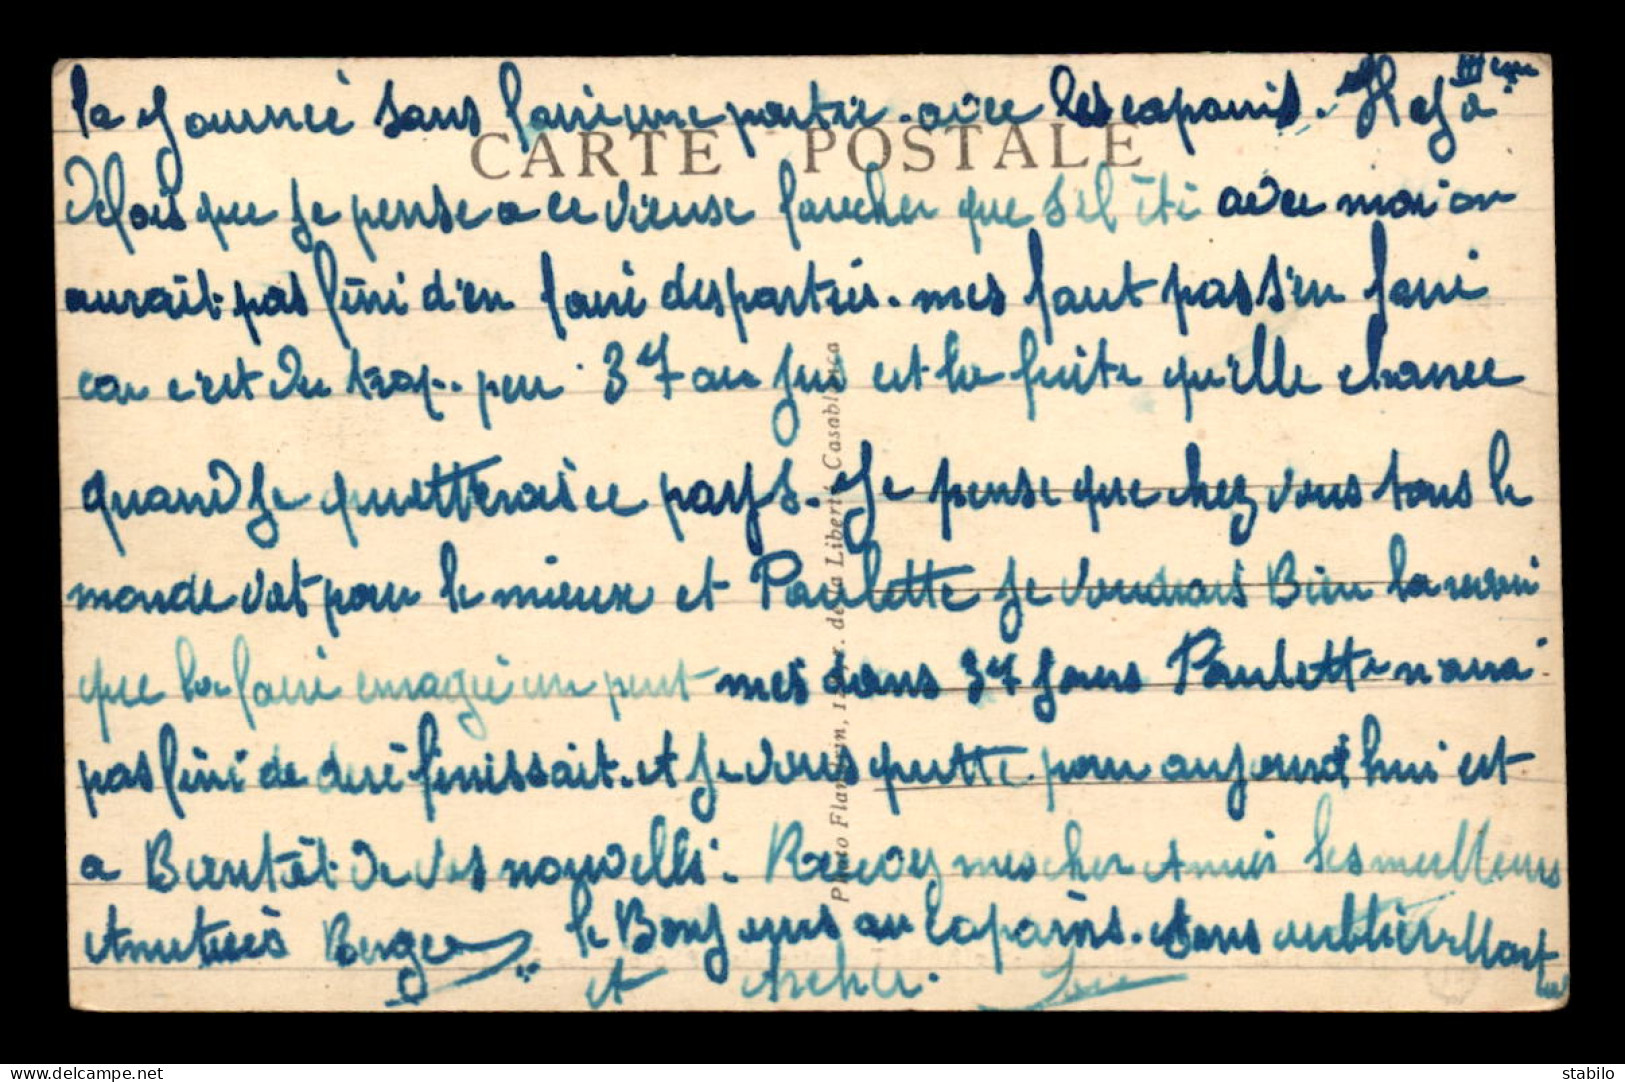 IIIème
la Journeé sans faire une partie. avec les copains. Il y a
CARTE POSTALE
defois que je pense a ce vieuse faucher que s'el été avec moi on
aurait pas fini d'en faire des partiés. mes faut pas s'en faire
car c'est du trop. peu 37 au jus et la fuite qu'elle chance
quand Je quitterais ce pays. Je pense que chez vous tous le
monde vat pour le mieux et Paulette Je voudrais Bien la revoir
que la faire enragé un peut mes dans 37 Jours Paulette n'aura
pas fini de deré finissait. et Je vous quitte pour aujourd'hui et
a Bientôt de vos nouvelles. Recevez mes cher Amies les meilleurs
Amitiés Berger le Bonjours au Copains. Sans oublier Mart
et Archer.
Photo Flandrin, de la Liberté Casablanca
stabilo
www.delcampe.net